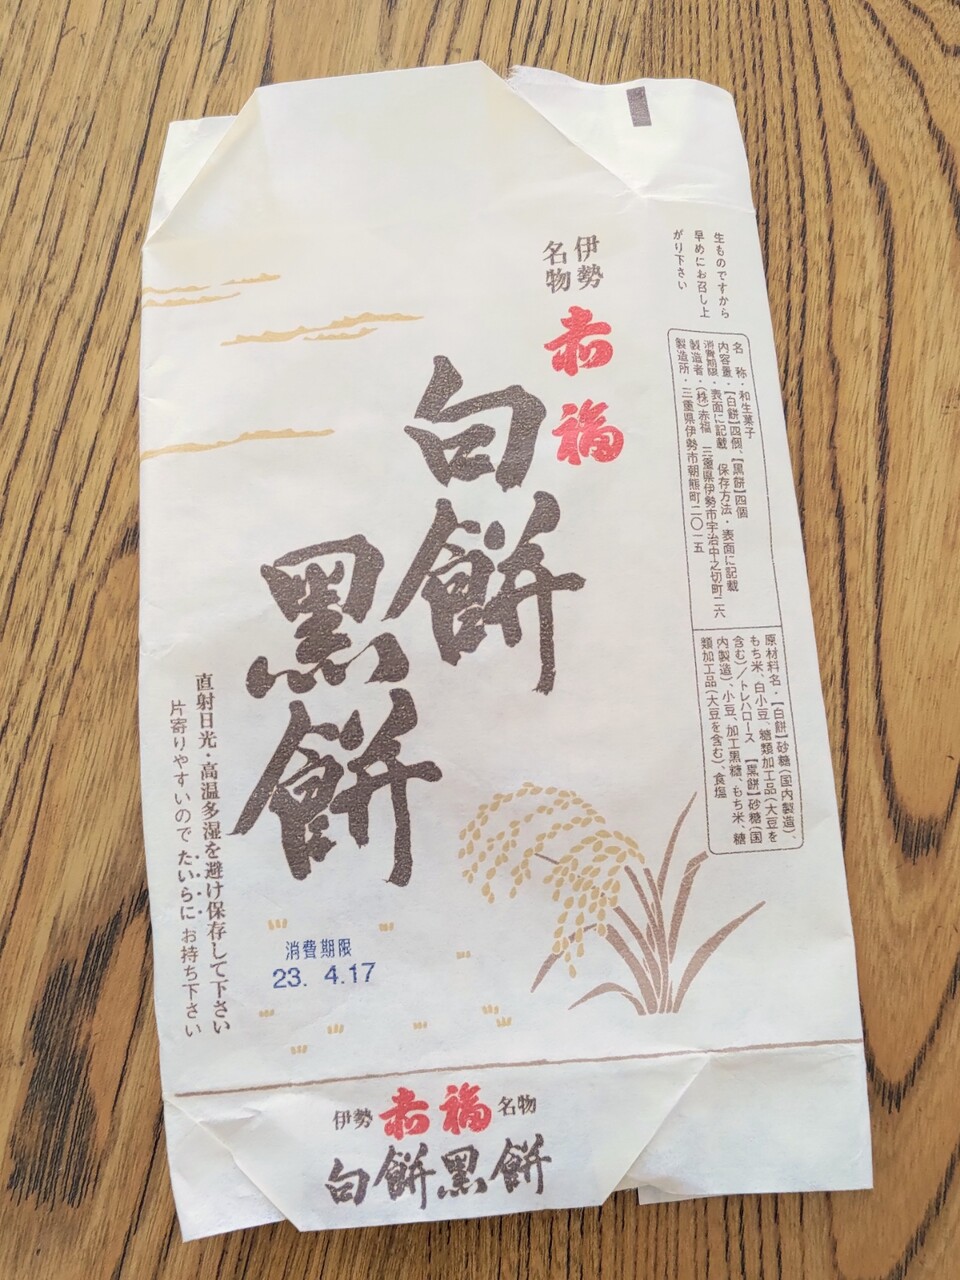 生ものですから
早めにお召し上
がり下さい
名　称・和生菓子
内容量・【白餅】四個、【黒餅】四個
消費期限・表面に記載　保存方法・表面に記載
製造者・(株)赤福　三重県伊勢市宇治中之切町二六
製造所・三重県伊勢市朝熊町二〇一五
原材料名・【白餅】砂糖(国内製造)、
もち米、白小豆、糖類加工品(大豆を
含む)／トレハロース　【黒餅】砂糖(国
内製造)、小豆、加工黒糖、もち米、糖
類加工品(大豆を含む)、食塩
伊勢
名物
赤福
白餅
黒餅
直射日光・高温多湿を避け保存して下さい
片寄りやすいのでたいらにお持ち下さい
消費期限
23. 4.17
伊勢 赤福 名物
白餅黒餅